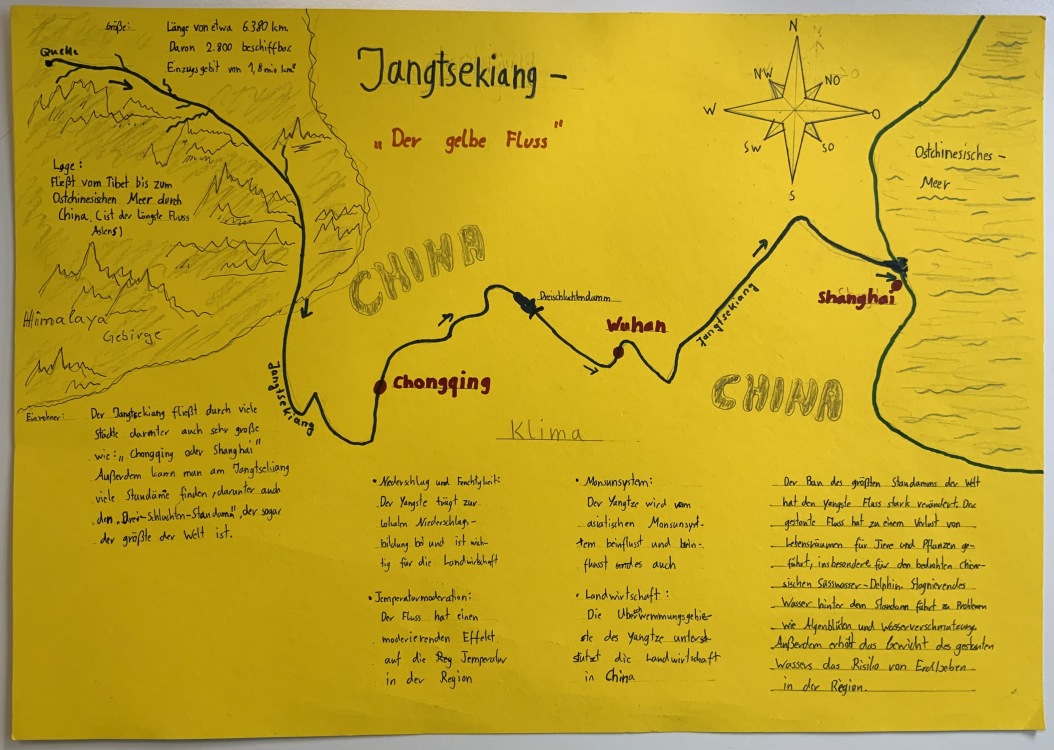 Größe: Länge von etwa 6.380 km
Davon 2.800 beschiffbar
Einzugsgebit von 1,8 mio km²
Quelle
Jangtsekiang –
„Der gelbe Fluss"
N
NW
NO
W
O
SW
SO
S
Ostchinesisches –
Meer
Lage:
Fließt vom Tibet bis zum
Ostchinesischen Meer durch
China. (ist der längste Fluss
Asiens)
CHINA
Himalaya
Gebirge
Dreischluchtendamm
Wuhan
Shanghai
Jangtsekiang
Chongqing
Jangtsekiang
CHINA
Klima
Einwohner:
Der Jangtsekiang fließt durch viele
Städte darunter auch sehr große
wie: „Chongqing oder Shanghai"
Außerdem kann man am Jangtsekiang
viele Staudäme finden, darunter auch
den „Drei-Schluchten-Staudamm", der sogar
der größte der Welt ist.
• Niederschlag und Feuchtigkeit:
Der Yangste trägt zur
lokalen Niederschlags-
bildung bei und ist wich-
tig für die Landwirtschaft
• Temperaturmoderation:
Der Fluss hat einen
moderierenden Effekt
auf die Reg Temperatur
in der Region
• Monsunsystem:
Der Yangtze wird vom
asiatischen Monsunsyst-
tem beinflusst und bein-
flusst auch
• Landwirtschaft:
Die Überschwemmungsgebie-
te des Yangtze unterst-
stützt die Landwirtschaft
in China
Der Bau des größten Staudamms der Welt
hat den Yangste Fluss stark verändert. Der
gestaute Fluss hat zu einem Verlust von
Lebensräumen für Tiere und Pflanzen ge-
führt, insbesondere für den bedrohten chine-
sischen Süsswasser-Delphin. Stagnierendes
Wasser hinter dem Staudamm führt zu Problemen
wie Algenblüten und Wasserverschmutzung.
Außerdem erhöht das Gewicht des gestauten
Wassers das Risiko von Erdbeben
in der Region.